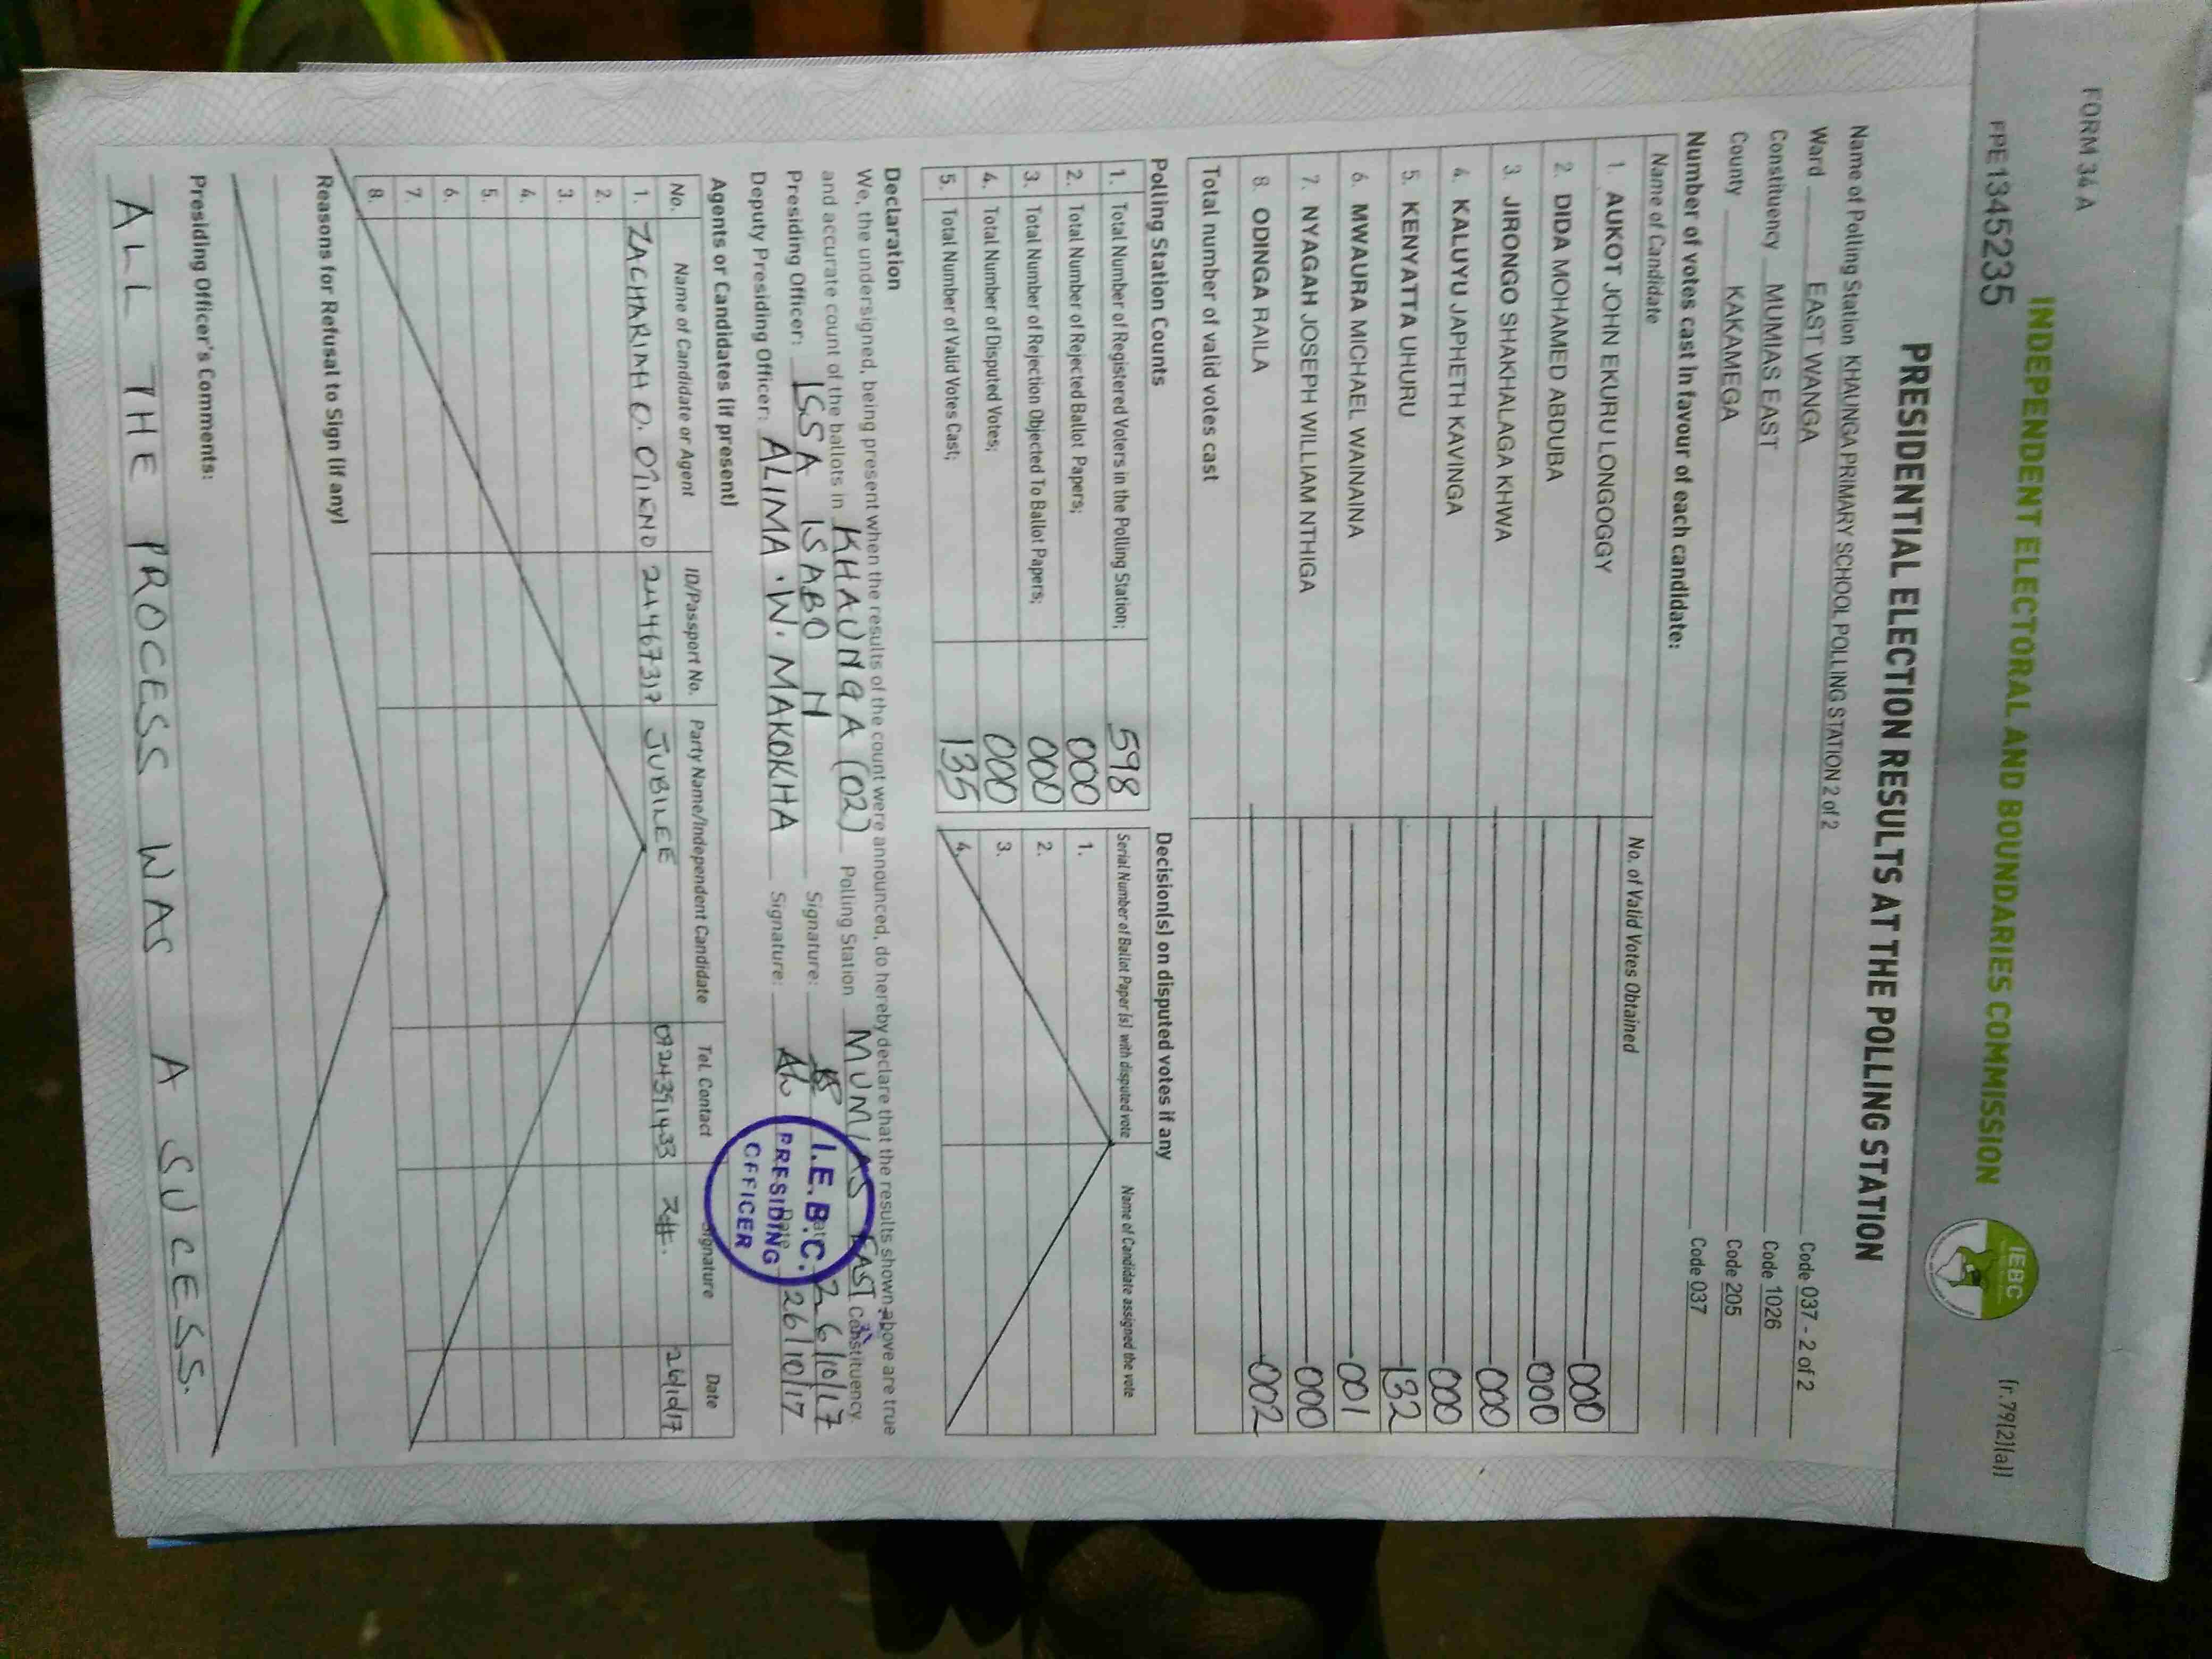 FORM 34 A
(r. 79(2)(a))
INDEPENDENT ELECTORAL AND BOUNDARIES COMMISSION
IEBC
PPE1345235
PRESIDENTIAL ELECTION RESULTS AT THE POLLING STATION
Name of Polling Station KHAUNGA PRIMARY SCHOOL POLLING STATION 2 of 2 Code 037 - 2 of 2
Ward EAST WANGA Code 1026
Constituency MUMIAS EAST Code 205
County KAKAMEGA Code 037
Number of votes cast in favour of each candidate:
Name of Candidate No. of Valid Votes Obtained
1. AUKOT JOHN EKURU LONGOGGY 000
2. DIDA MOHAMED ABDUBA 000
3. JIRONGO SHAKHALAGA KHWA 000
4. KALUYU JAPHETH KAVINGA 000
5. KENYATTA UHURU 132
6. MWAURA MICHAEL WAINAINA 001
7. NYAGAH JOSEPH WILLIAM NTHIGA 000
8. ODINGA RAILA 002
Total number of valid votes cast
Polling Station Counts
1. Total Number of Registered Voters in the Polling Station; 598
2. Total Number of Rejected Ballot Papers; 000
3. Total Number of Rejection Objected To Ballot Papers; 000
4. Total Number of Disputed Votes; 000
5. Total Number of Valid Votes Cast; 135
Decision(s) on disputed votes if any
Serial Number of Ballot Paper (s) with disputed vote Name of Candidate assigned the vote
1.
2.
3.
4.
Declaration
We, the undersigned, being present when the results of the count were announced, do hereby declare that the results shown above are true
and accurate count of the ballots in KHAUNGA (02) Polling Station MUMIAS EAST Constituency.
Presiding Officer: ISSA ISABO N Signature: Date 26/10/17
Deputy Presiding Officer: ALIMA . W. MAKOKHA Signature: Date 26/10/17
I.E.B.C.
PRESIDING
OFFICER
Agents or Candidates (if present)
No. Name of Candidate or Agent ID/Passport No. Party Name/Independent Candidate Tel. Contact Signature Date
1. ZACHARIAH O. OTIENO 24467317 JUBILEE 0724391433 26/10/17
2.
3.
4.
5.
6.
7.
8.
Reasons for Refusal to Sign (if any)
Presiding Officer's Comments:
ALL THE PROCESS WAS A SUCESS.